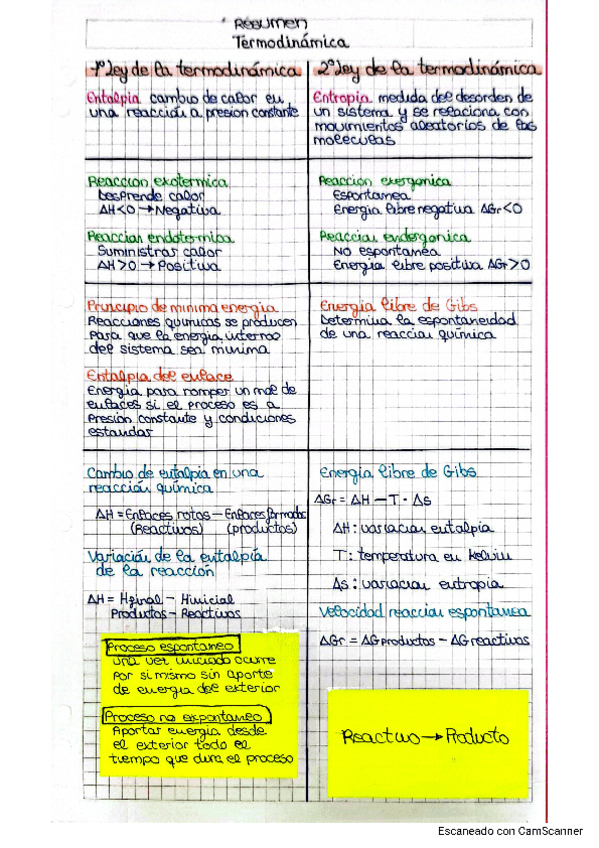 Resumen
Termodinámica
1º Ley de la termodinámica
Entalpia cambio de calor en
una reacción a presión constante
Reaccion exotermica
Desprende calor
ΔH<0 → Negativa
Reaccian endotermica
Suministrar calor
ΔH>0 → Positiva
Principio de minima energia
Reacciones químicas se producen
para que la energia interna
del sistema sea minima
Entalpia del enlace
Energia para romper un mol de
enlaces si el proceso es a
presión constante y condiciones
estandar
Cambio de entalpia en una
reacción química
ΔH = Enlaces rotos − Enlaces formados
(Reactivos) (productos)
Variación de la entalpía
de la reacción
ΔH = Hfinal − Hinicial
Productos − Reactivos
Proceso espontaneo
una vez iniciado ocurre
por si mismo sin aporte
de energia del exterior
Proceso no espontaneo
Aportar energia desde
el exterior todo el
tiempo que dura el proceso
2º Ley de la termodinámica
Entropia medida del desorden de
un sistema y se relaciona con
movimientos aleatorios de las
moleculas
Reaccion exergonica
Espontanea
Energia libre negativa ΔGr<0
Reaccian endergonica
No espontanea
Energia libre positiva ΔGr>0
Energia libre de Gibs
Determina la espontaneidad
de una reaccian química
Energia libre de Gibs
ΔGr = ΔH − T · Δs
ΔH: variacian entalpia
T: temperatura en kelvin
Δs: variacian entropia
Velocidad reaccian espontanea
ΔGr = ΔG productos − ΔG reactivos
Reactivo → Producto
Escaneado con CamScanner